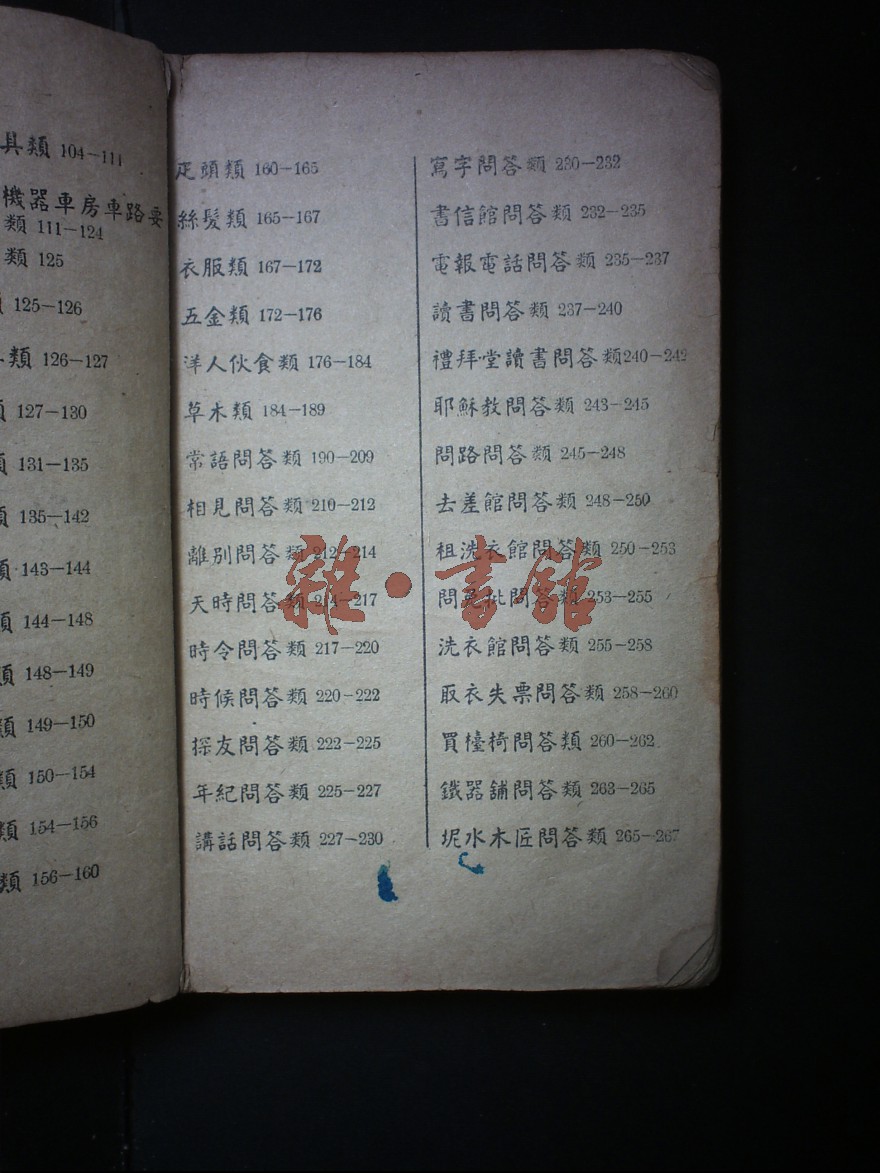 具類 104—111
機器車房車路要
類 111—124
類 125
125—126
類 126—127
127—130
131—135
135—142
143—144
類 144—148
148—149
149—150
150—154
154—156
類 156—160
疋頭類 160—165
絲髪類 165—167
衣服類 167—172
五金類 172—176
洋人伙食類 176—184
草木類 184—189
常語問答類 190—209
相見問答類 210—212
離別問答類 212—214
天時問答類 214—217
時令問答類 217—220
時候問答類 220—222
探友問答類 222—225
年紀問答類 225—227
講話問答類 227—230
寫字問答類 230—232
書信館問答類 232—235
電報電話問答類 235—237
讀書問答類 237—240
禮拜堂讀書問答類240—242
耶穌教問答類 243—245
問路問答類 245—248
去差館問答類 248—250
租洗衣館問答類 250—253
問問答類 253—255
洗衣館問答類 255—258
取衣失票問答類 258—260
買檯椅問答類 260—262
鐵器舖問答類 263—265
坭水木匠問答類 265—267
雜·書館